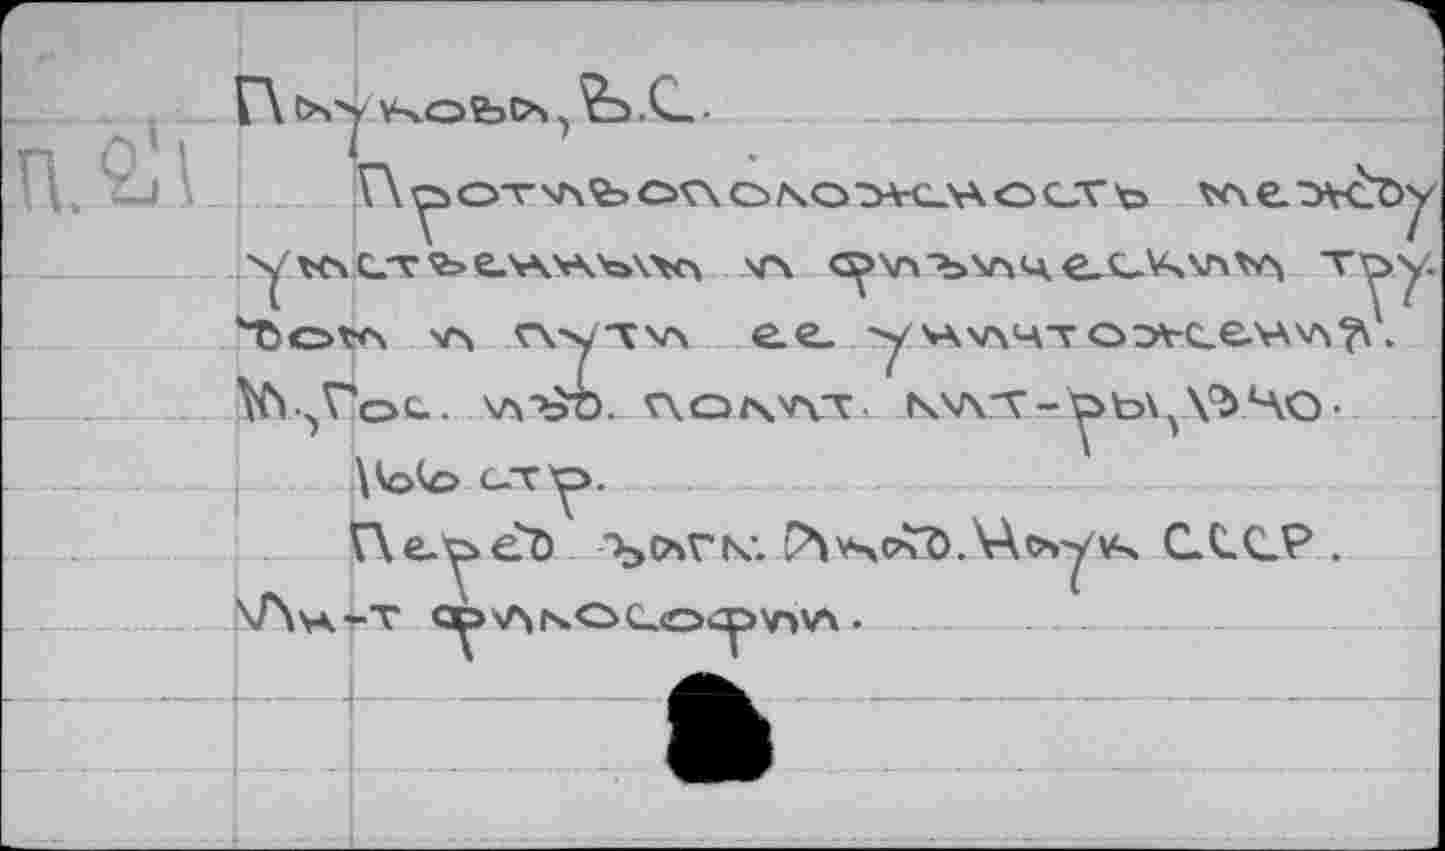 Паукова, В.С.
П. 21
Противоположность между
умственным и физическим тру-
дом и пути ее уничтожения.
М., Гос. изд. полит. лит-ры, 1940.
166 стр.
Перед загл: Акад. Наук СССР.
Ин-т философии.